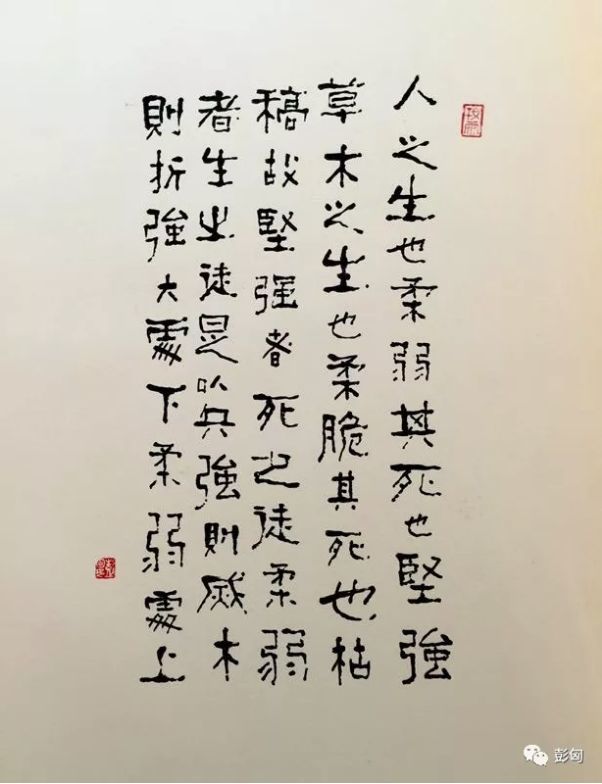 人之生也柔弱其死也堅強
草木之生也柔脆其死也枯
稿故堅强者死之徒柔弱
者生之徒是以兵強則烕木
則折強大處下柔弱處上
彭匈